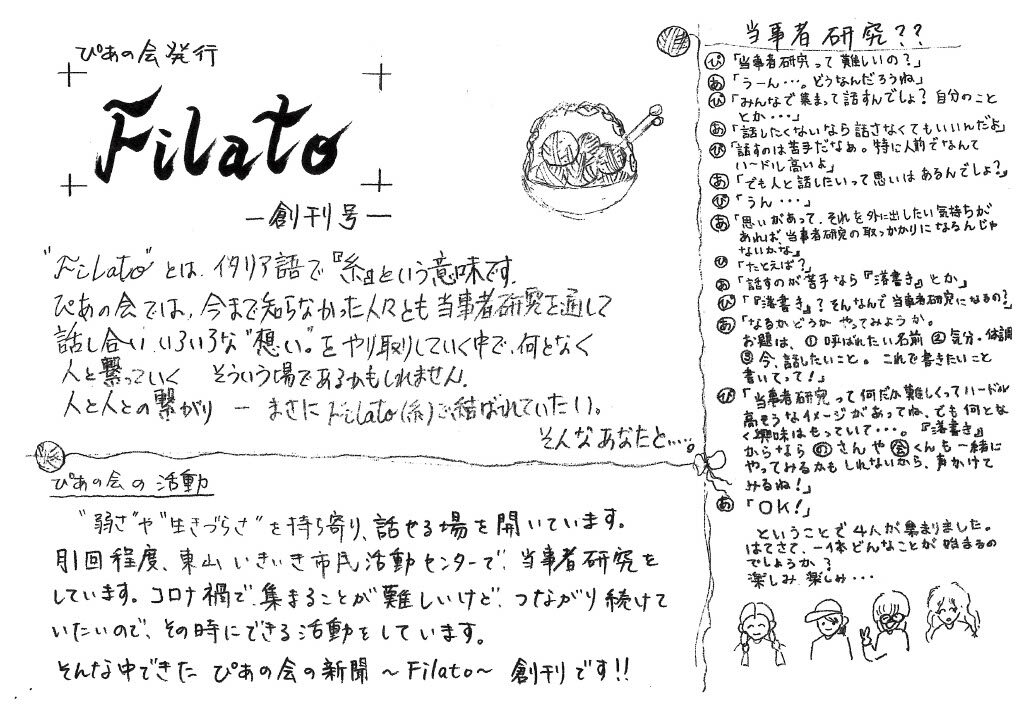 ぴあの会発行
Filato
ー創刊号ー
"Filato"とは、イタリア語で『糸』という意味です。
ぴあの会では、今まで知らなかった人々とも当事者研究を通して
話し合い、いろいろな"想い"をやり取りしていく中で、何となく
人と繋っていく そういう場であるかもしれません。
人と人との繋がり ー まさにFilato(糸)で結ばれていたい。
そんなあなたと…。
ぴあの会の活動
"弱さ"や"生きづらさ"を持ち寄り、話せる場を開いています。
月1回程度、東山いきいき市民活動センターで、当事者研究を
しています。コロナ禍で、集まることが難しいけど、つながり続けて
いたいので、その時にできる活動をしています。
そんな中できた ぴあの会の新聞 〜Filato〜 創刊です!!
当事者研究??
ぴ「当事者研究って難しいの?」
あ「うーん・・・。どうなんだろうね」
ぴ「みんなで集まって話すんでしょ?自分のこと
とか・・・」
あ「話したくないなら話さなくてもいいんだよ」
ぴ「話すのは苦手だなぁ。特に人前でなんて
ハードル高いよ」
あ「でも人と話したいって思いはあるんでしょ?」
ぴ「うん・・・」
あ「思いがあって、それを外に出したい気持ちが
あれば、当事者研究の取っかかりになるんじゃ
ないかな」
ぴ「たとえば?」
あ「話すのが苦手なら『落書き』とか」
ぴ「『落書き』?そんなんで当事者研究になるの?」
あ「なるかどうかやってみようか。
お題は、①呼ばれたい名前②気分・体調
③今、話したいこと。これで書きたいこと
書いてって!」
ぴ「当事者研究って何だか難しくってハードル
高そうなイメージがあってね、でも何とな
く興味はもっていて・・・。『落書き』
からなら のさんや会くんも一緒に
やってみるかもしれないから、声かけて
みるね!」
あ「OK!」
ということで4人が集まりました。
はてさて、一体どんなことが始まるの
でしょうか?
楽しみ楽しみ・・・